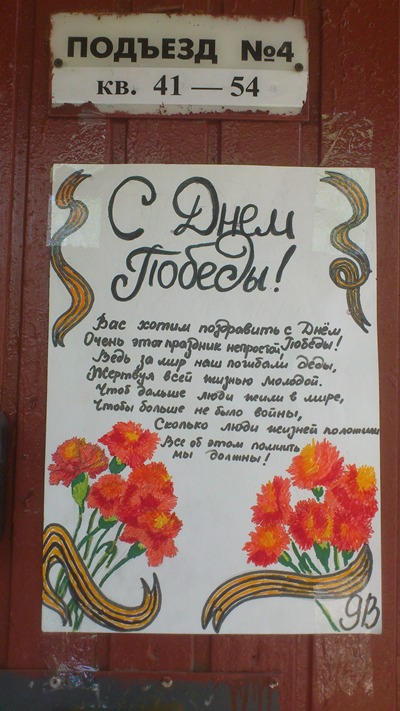 ПОДЪЕЗД №4
кв. 41 — 54
С Днем
Победы!
Вас хотим поздравить с Днём
Очень этот праздник непростой, Победы!
Ведь за мир наш погибали деды,
Жертвуя всей жизнью молодой.
Чтоб дальше люди жили в мире,
Чтобы больше не было войны,
Сколько люди жизней положили
Все об этом помнить
мы должны!
ЯВ